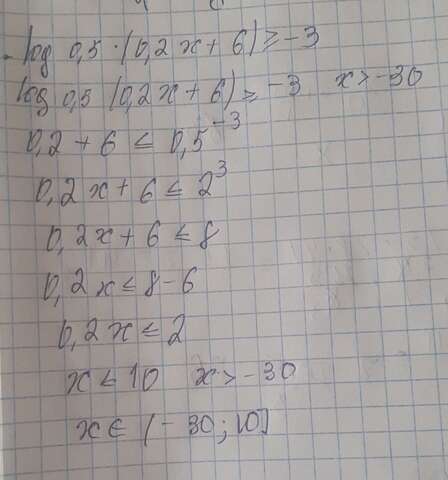 log 0,5 · (0,2x + 6) ≥ -3
log 0,5 (0,2x + 6) ≥ -3 x > -30
0,2 + 6 ≤ 0,5⁻³
0,2x + 6 ≤ 2³
0,2x + 6 ≤ 8
0,2x ≤ 8 - 6
0,2x ≤ 2
x < 10 x > -30
x ∈ (-30; 10]